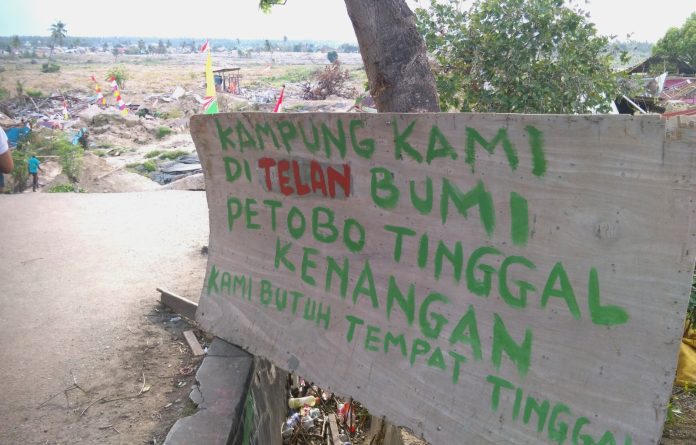 KAMPUNG KAMI
DI TELAN BUMI
PETOBO TINGGAL
KENANGAN
KAMI BUTUH TEMPAT TINGGA